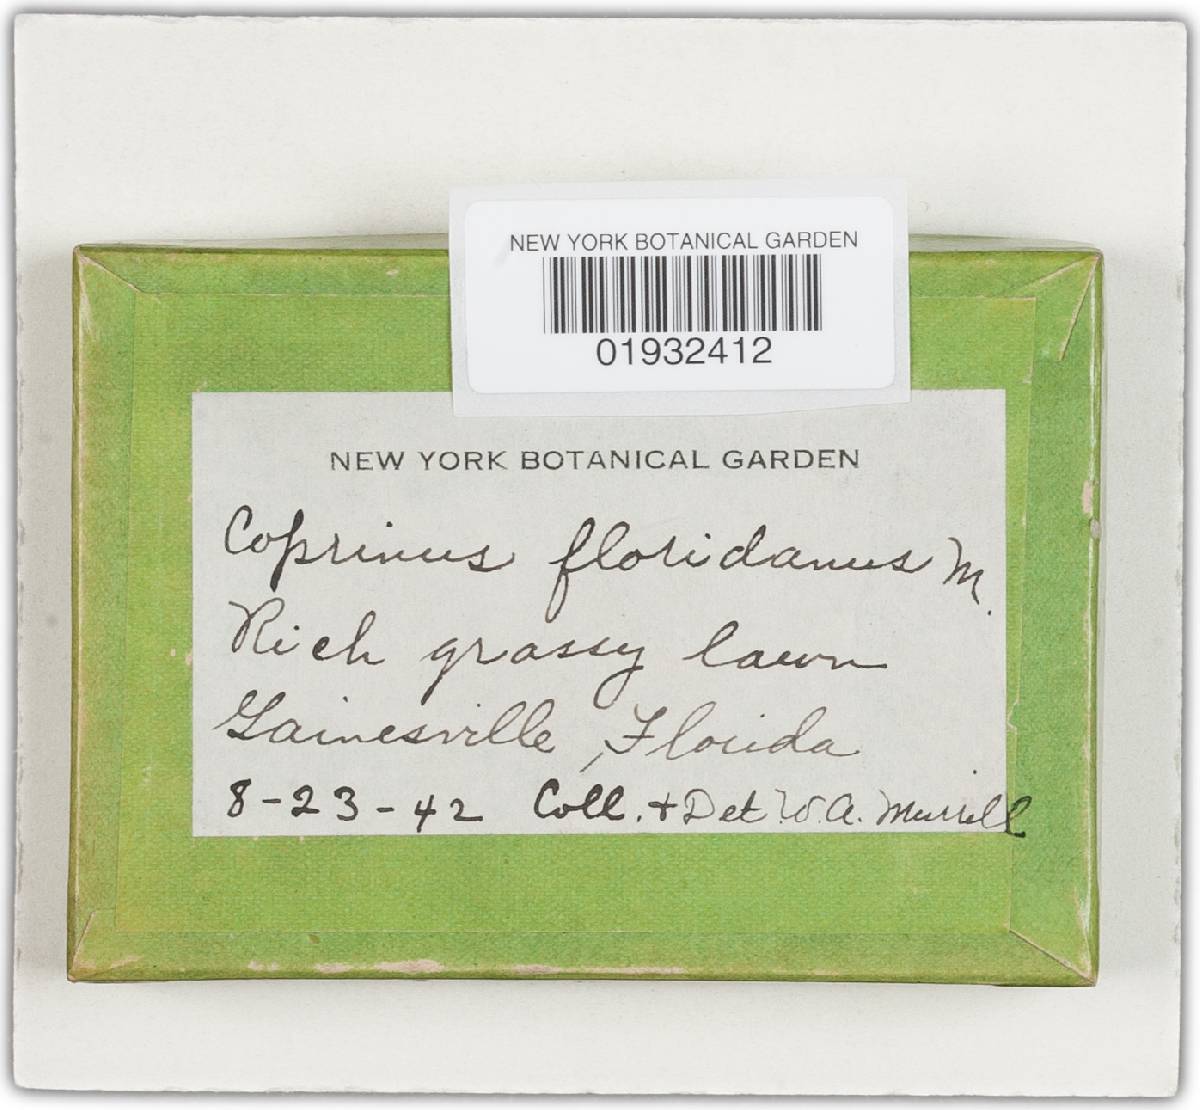 NEW YORK BOTANICAL GARDEN
01932412
NEW YORK BOTANICAL GARDEN
Coprinus floridanus M.
Rich grassy lawn
Gainesville, Florida
8-23-42 Coll. + Det. W.A. Murrill